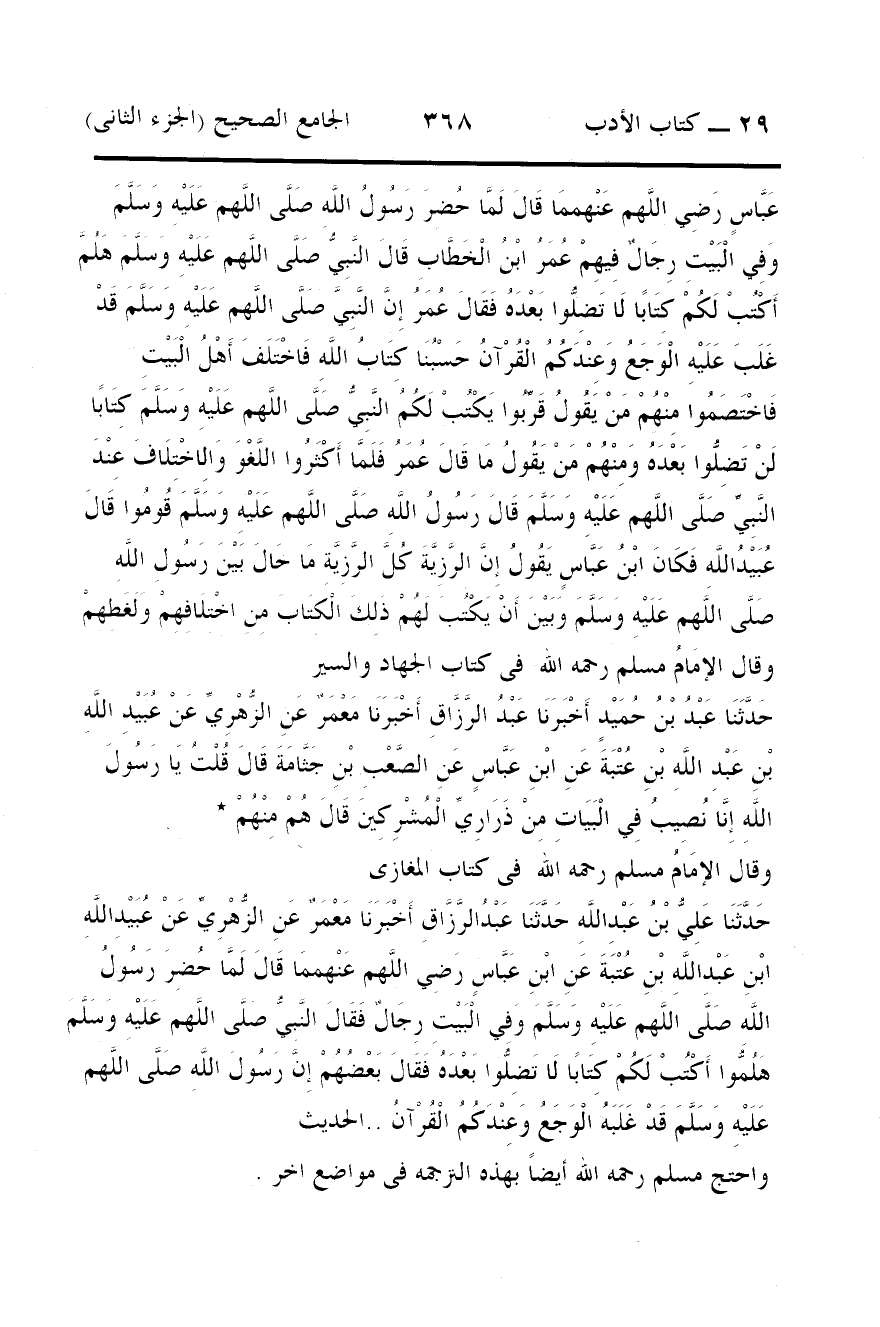 ٢٩ ــ كتاب الأدب ٣٦٨ الجامع الصحيح (الجزء الثانى)
عَبَّاسٍ رَضِي اللَّهم عَنْهممَا قَالَ لَمَّا حُضِرَ رَسُولُ اللَّهِ صَلَّى اللَّهم عَلَيْهِ وَسَلَّمَ
وَفِي الْبَيْتِ رِجَالٌ فِيهِمْ عُمَرُ ابْنُ الْخَطَّابِ قَالَ النَّبِيُّ صَلَّى اللَّهم عَلَيْهِ وَسَلَّمَ هَلُمَّ
أَكْتُبْ لَكُمْ كِتَابًا لَا تَضِلُّوا بَعْدَهُ فَقَالَ عُمَرُ إِنَّ النَّبِيَّ صَلَّى اللَّهم عَلَيْهِ وَسَلَّمَ قَدْ
غَلَبَ عَلَيْهِ الْوَجَعُ وَعِنْدَكُمُ الْقُرْآنُ حَسْبُنَا كِتَابُ اللَّهِ فَاخْتَلَفَ أَهْلُ الْبَيْتِ
فَاخْتَصَمُوا مِنْهُمْ مَنْ يَقُولُ قَرِّبُوا يَكْتُبْ لَكُمُ النَّبِيُّ صَلَّى اللَّهم عَلَيْهِ وَسَلَّمَ كِتَابًا
لَنْ تَضِلُّوا بَعْدَهُ وَمِنْهُمْ مَنْ يَقُولُ مَا قَالَ عُمَرُ فَلَمَّا أَكْثَرُوا اللَّغْوَ وَالِاخْتِلَافَ عِنْدَ
النَّبِيِّ صَلَّى اللَّهم عَلَيْهِ وَسَلَّمَ قَالَ رَسُولُ اللَّهِ صَلَّى اللَّهم عَلَيْهِ وَسَلَّمَ قُومُوا قَالَ
عُبَيْدُاللَّهِ فَكَانَ ابْنُ عَبَّاسٍ يَقُولُ إِنَّ الرَّزِيَّةَ كُلَّ الرَّزِيَّةِ مَا حَالَ بَيْنَ رَسُولِ اللَّهِ
صَلَّى اللَّهم عَلَيْهِ وَسَلَّمَ وَبَيْنَ أَنْ يَكْتُبَ لَهُمْ ذَلِكَ الْكِتَابَ مِنِ اخْتِلَافِهِمْ وَلَغَطِهِمْ
وقال الإمَامُ مسلم رحمه الله فى كتاب الجهاد والسير
حَدَّثَنَا عَبْدُ بْنُ حُمَيْدٍ أَخْبَرَنَا عَبْدُ الرَّزَّاقِ أَخْبَرَنَا مَعْمَرٌ عَنِ الزُّهْرِيِّ عَنْ عُبَيْدِ اللَّهِ
بْنِ عَبْدِ اللَّهِ بْنِ عُتْبَةَ عَنِ ابْنِ عَبَّاسٍ عَنِ الصَّعْبِ بْنِ جَثَّامَةَ قَالَ قُلْتُ يَا رَسُولَ
اللَّهِ إِنَّا نُصِيبُ فِي الْبَيَاتِ مِنْ ذَرَارِيِّ الْمُشْرِكِينَ قَالَ هُمْ مِنْهُمْ *
وقال الإمَامُ مسلم رحمه الله فى كتاب المغازى
حَدَّثَنَا عَلِيُّ بْنُ عَبْدِاللَّهِ حَدَّثَنَا عَبْدُالرَّزَّاقِ أَخْبَرَنَا مَعْمَرٌ عَنِ الزُّهْرِيِّ عَنْ عُبَيْدِاللَّهِ
ابْنِ عَبْدِاللَّهِ بْنِ عُتْبَةَ عَنِ ابْنِ عَبَّاسٍ رَضِي اللَّهم عَنْهممَا قَالَ لَمَّا حُضِرَ رَسُولُ
اللَّهِ صَلَّى اللَّهم عَلَيْهِ وَسَلَّمَ وَفِي الْبَيْتِ رِجَالٌ فَقَالَ النَّبِيُّ صَلَّى اللَّهم عَلَيْهِ وَسَلَّمَ
هَلُمُّوا أَكْتُبْ لَكُمْ كِتَابًا لَا تَضِلُّوا بَعْدَهُ فَقَالَ بَعْضُهُمْ إِنَّ رَسُولَ اللَّهِ صَلَّى اللَّهم
عَلَيْهِ وَسَلَّمَ قَدْ غَلَبَهُ الْوَجَعُ وَعِنْدَكُمُ الْقُرْآنُ ..الحديث
واحتج مسلم رحمه الله أيضاً بهذه الترجمه فى مواضع اخر .